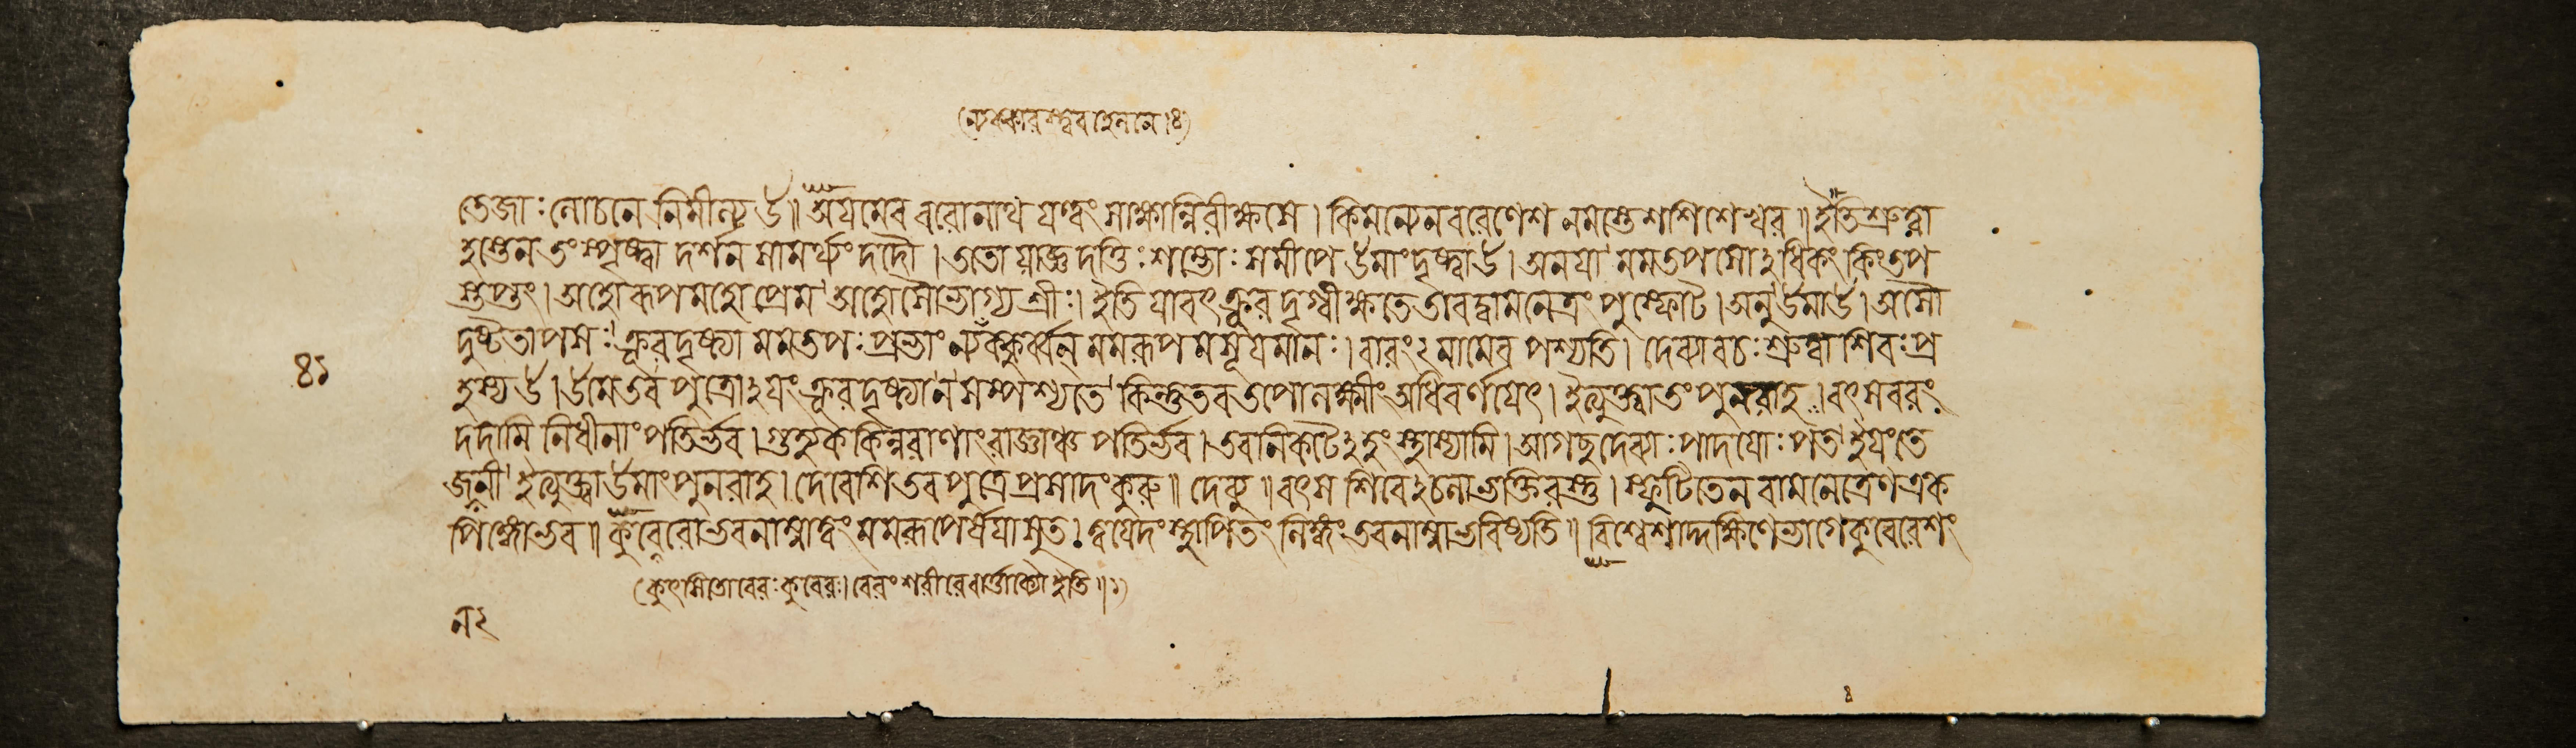 (ন্যক্কারস্ত্ববহেলনে।৪)
তেজাঃ লোচনে নিমীল্য উ॥ অযমেব বরোনাথ যত্ত্বং সাক্ষান্নিরীক্ষসে। কিমন্যেনবরেণেশ নমস্তেশশিশেখর॥ ইতিশ্রুত্বা
হস্তেন তংস্পৃষ্ট্বা দর্শন সামর্থ্যংদদৌ। ততোযাজ্ঞদত্তিঃশম্ভোঃ সমীপে উমাংদৃষ্ট্বাউ। অনযা মমতপসোঽধিকং কিংতপ
স্তপ্তং। অহোরূপমহোপ্রেম অহোসৌভাগ্যশ্রীঃ। ইতি যাবৎক্রূরদৃগ্বীক্ষতেতাবদ্বামনেত্রং পুস্ফোট। অনুউমাউ। অসৌ
৪১
দুষ্টতাপসঃ ক্রূরদৃষ্ট্যা মমতপঃপ্রভাং ন্যক্কুর্ব্বন্ মমরূপমসূযমানঃ। বারং২মামেব পশ্যতি। দেব্যাবচঃশ্রুত্বা শিবঃপ্র
হস্যউ। উমেতব পুত্রোঽযংক্রূরদৃষ্ট্যান সম্পশ্যতে কিন্তুতব তপোলক্ষ্মীংঅধিবর্ণযেৎ। ইত্যুক্ত্বাতংপুনরাহ।বৎসবরং
দদামি নিধীনাংপতির্ভব। গুহ্যককিন্নরাণাংরাজ্ঞাঞ্চ পতির্ভব। তবনিকটেঽহংস্থাস্যামি। আগছদেব্যাঃপাদযোঃপত ইযংতে
জননী ইত্যুক্ত্বাউমাংপুনরাহ। দেবেশিতবপুত্রেপ্রসাদংকুরু॥ দেব্যু॥ বৎস শিবেঽচলাভক্তিরস্তু। স্ফুটিতেন বামনেত্রেণএক
পিঙ্গোভব॥ কুবেরোভবনাম্নাত্বং মমরূপের্ষযাসুত। ত্বযেদংস্থাপিতংলিঙ্গংতবনাম্নাভবিষ্যতি॥ বিশ্বেশাদ্দক্ষিণেভাগেকুবেরেশং
(কুৎসিতোবেরঃকুবেরঃ।বেরংশরীরেবার্ত্তাক্যো ইতি॥১)
ন২